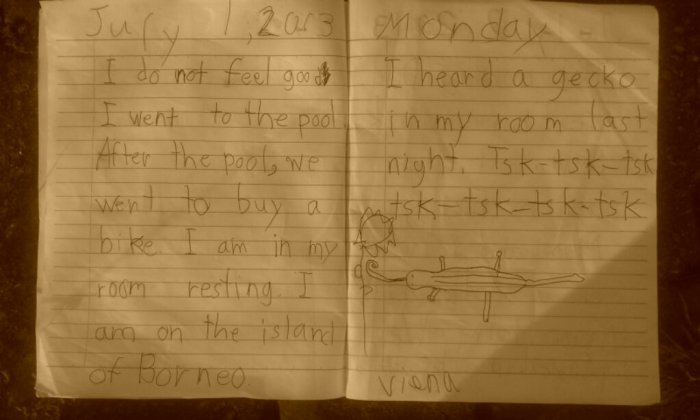 July 1, 2013
I do not feel good
I went to the pool.
After the pool, we
went to buy a
bike. I am in my
room resting. I
am on the island
of Borneo
Monday
I heard a gecko
in my room last
night. Tsk-tsk-tsk
tsk-tsk-tsk-tsk
viana